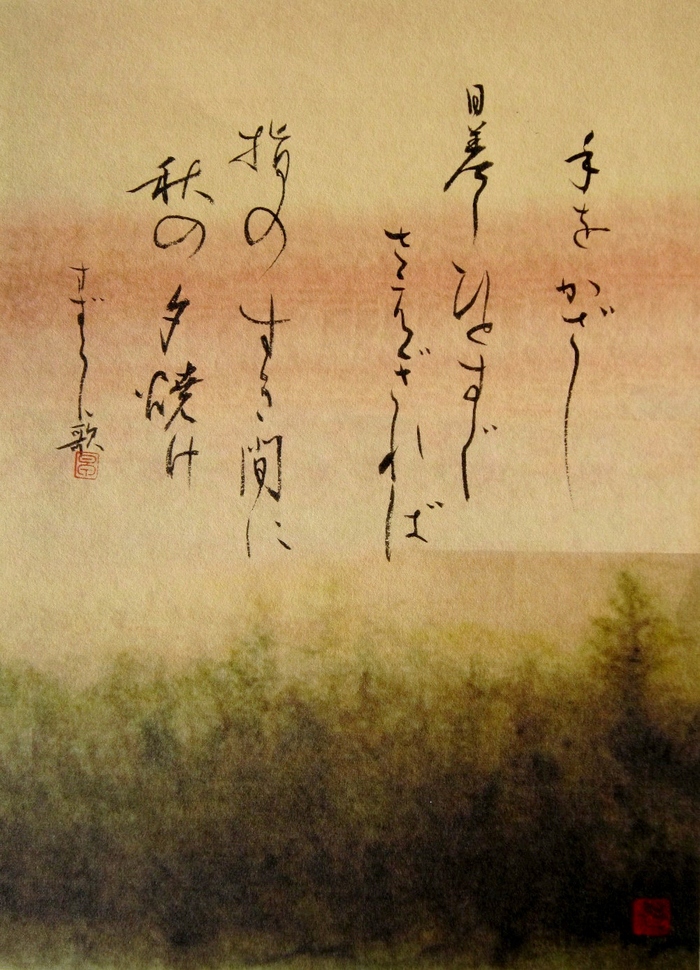 手をかざし
日差しひとすじ
さえぎれば
指のすき間に
秋の夕焼け
歌